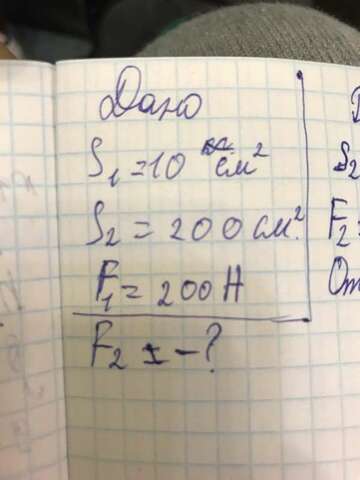 Дано
S₁=10 см²
S₂ = 200 см²
F₁ = 200 Н
F₂ = -?
S₂
F₂
От